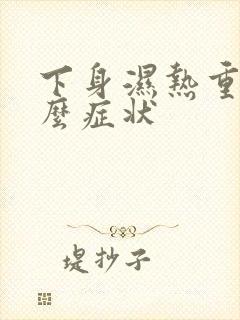 下身濕熱重
麼症狀
堤抄子